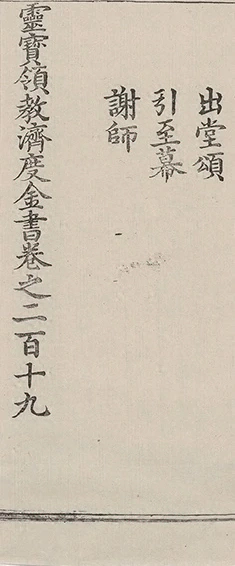 出堂頌
引至幕
謝師
靈寶領教濟度金書卷之二百十九